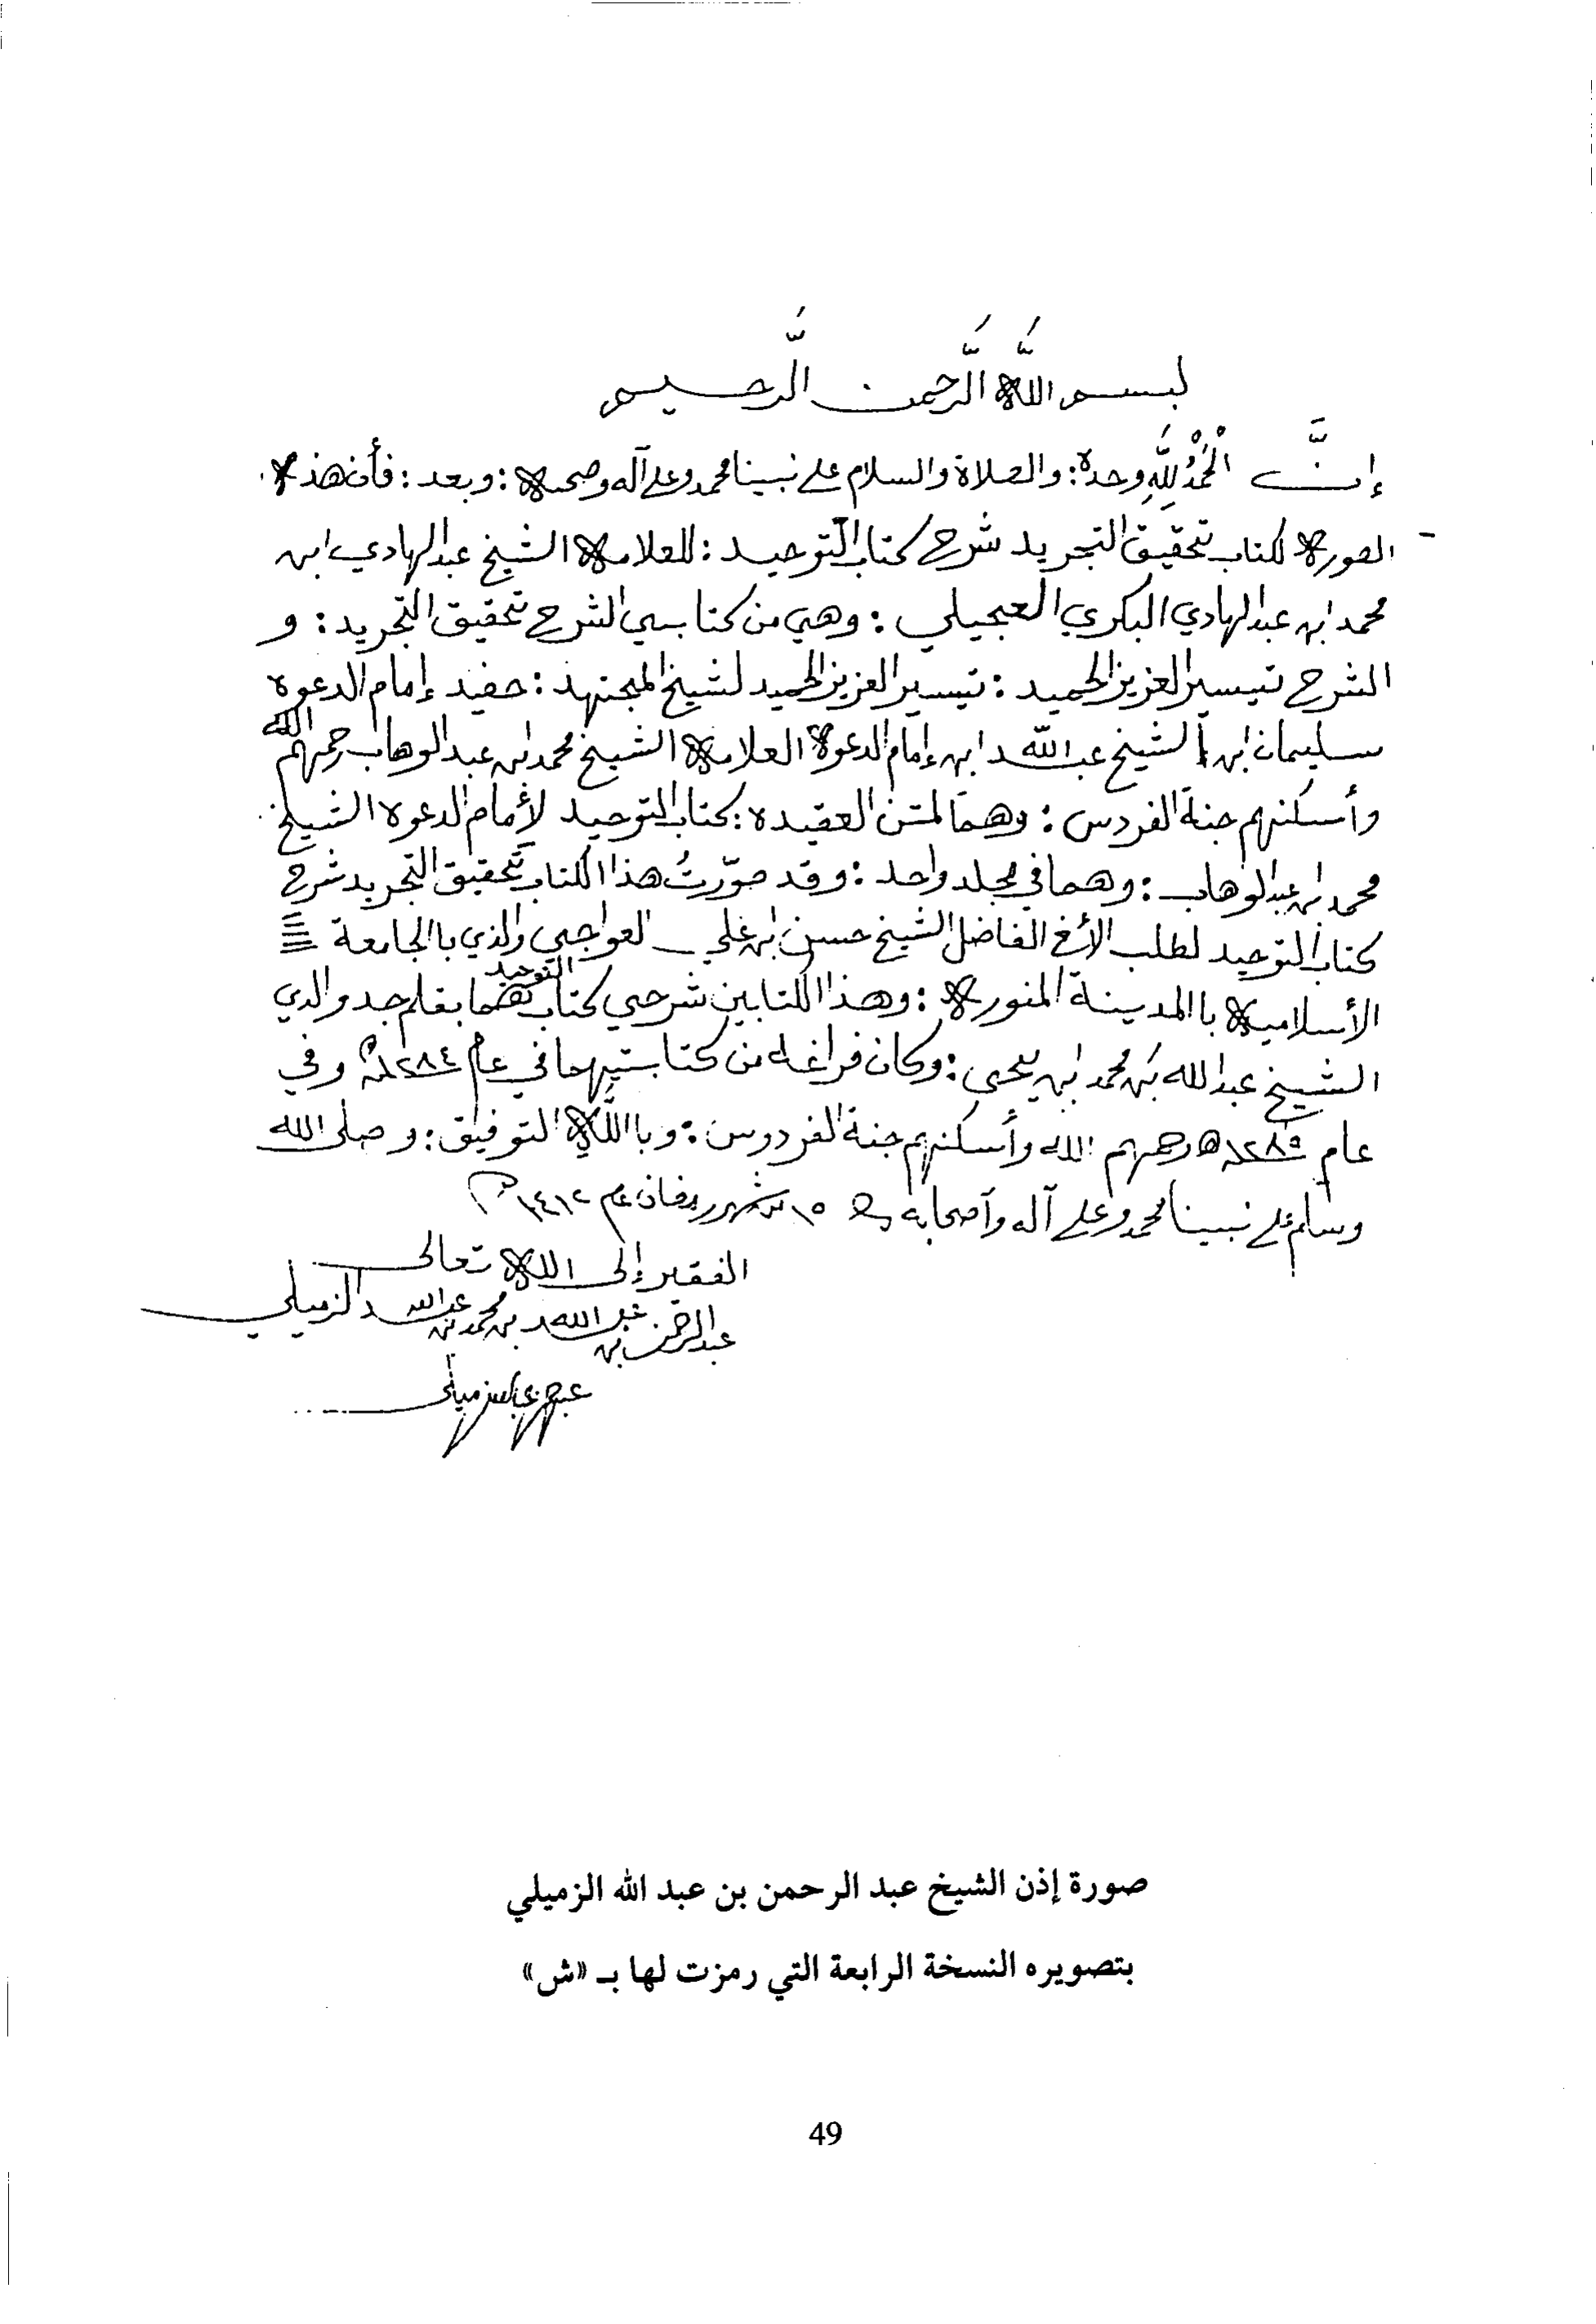 بسم اللَّه الرَّحمن الرَّحيم
إنَّ الْحَمْدُ للَّهِ وحده: والصلاة والسلام على نبينا محمد وعلى آله وصحبه: وبعد: فأن هذه
الصوره لكتاب تحقيق التجريد شرح كتاب التوحيد: للعلامه الشيخ عبد الهادي ابن
محمد ابن عبد الهادي البكري العجيلي: وهي من كتابي الشرح تحقيق التجريد: و
الشرح تيسير العزيز الحميد: تيسير العزيز الحميد لشيخ المجتهد: حفيد إمام الدعوه
سليمان ابن الشيخ عبد الله ابن إمام الدعوة العلامه الشيخ محمد ابن عبد الوهاب رحمهم الله
وأسكنهم جنة الفردس: وهما لمتن العقيده: كتاب التوحيد لأمام الدعوه الشيخ
محمد ابن عبد الوهاب: وهما في مجلد واحد: وقد صوّرتُ هذا الكتاب تحقيق التجريد شرح
كتاب التوحيد لطلب الأخ الفاضل الشيخ حسن ابن علي العواجي والذي باالجامعة
الأسلاميه باالمدينة المنوره: وهذا الكتابين شرحي كتاب التوحيد هما بقلم جد والدي
الشيخ عبد الله بن محمد ابن يحيى: وكان فراغه من كتابتيهما في عام ١٢٨٤هـ وفي
عام ١٢٨٥هـ رحمهم الله وأسكنهم جنة الفردوس: وباالله التوفيق: وصلى الله
وسلم على نبينا محمد وعلى آله وأصحابه ١٥ شهر رمضان عام ١٤١٢هـ
الفقير إلى الله تعالى
عبد الرحمن بن عبد الله بن محمد بن عبد الله الزميلي
صورة إذن الشيخ عبد الرحمن بن عبد الله الزميلي
بتصويره النسخة الرابعة التي رمزت لها بـ «ش»
49